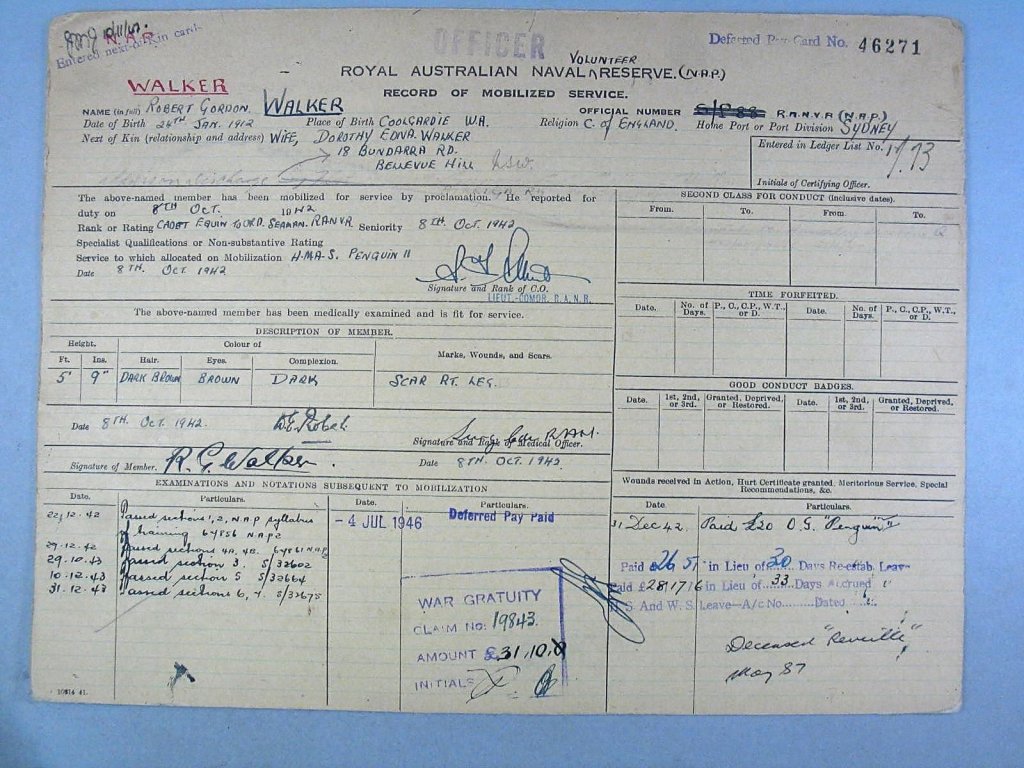 N.A.P.
Entered next-of-kin card.
OFFICER
Deferred Pay Card No. 46271
VOLUNTEER
ROYAL AUSTRALIAN NAVAL RESERVE. (N.A.P.)
WALKER
RECORD OF MOBILIZED SERVICE.
NAME (in full) ROBERT GORDON. WALKER OFFICIAL NUMBER R.A.N.V.R (N.A.P.)
Date of Birth 24TH JAN. 1912 Place of Birth COOLGARDIE WA. Religion C. of ENGLAND. Home Port or Port Division SYDNEY
Next of Kin (relationship and address) WIFE, DOROTHY EDNA WALKER
18 BUNDARRA RD.
BELLEVUE HILL NSW.
Entered in Ledger List No.
Initials of Certifying Officer.
The above-named member has been mobilized for service by proclamation. He reported for
duty on 8TH OCT. 1942
Rank or Rating CADET EQUIV TO ORD. SEAMAN. RANVR Seniority 8TH OCT. 1942
Specialist Qualifications or Non-substantive Rating
Service to which allocated on Mobilization H.M.A.S. PENGUIN II
Date 8TH. OCT 1942
Signature and Rank of C.O.
LIEUT.-COMDR. R.A.N.R.
The above-named member has been medically examined and is fit for service.
DESCRIPTION OF MEMBER.
Height. Colour of Marks, Wounds, and Scars.
Ft. Ins. Hair. Eyes. Complexion.
5' 9" DARK BROWN BROWN DARK SCAR RT. LEG.
Date 8TH. OCT. 1942.
Signature and Rank of Medical Officer.
Signature of Member. R. G. Walker. Date 8TH. OCT. 1942.
SECOND CLASS FOR CONDUCT (inclusive dates).
From. To. From. To.
TIME FORFEITED.
Date. No. of Days. P., C., C.P., W.T., or D. Date. No. of Days. P., C., C.P., W.T., or D.
GOOD CONDUCT BADGES.
Date. 1st, 2nd, or 3rd. Granted, Deprived, or Restored. Date. 1st, 2nd, or 3rd. Granted, Deprived, or Restored.
EXAMINATIONS AND NOTATIONS SUBSEQUENT TO MOBILIZATION
Date. Particulars. Date. Particulars.
22.12.42 Passed sections 1, 2, N.A.P syllabus
of training 64856 N.A.P.2
29.12.42 Passed sections 4A, 4B. 64861 N.A.P.2
29.10.43 Passed section 3. S/32602
10.12.43 Passed section 5 S/32664
31.12.43 Passed sections 6, 7. S/32675
- 4 JUL 1946 Deferred Pay Paid
WAR GRATUITY
CLAIM NO: 19843.
AMOUNT £31.10.0
INITIALS
Wounds received in Action, Hurt Certificate granted, Meritorious Service, Special
Recommendations, &c.
Date Particulars.
31 Dec 42. Paid £20 O.G. "Penguin"
Paid in Lieu of 30 Days Re-estab. Leave
Paid £28/17/6 in Lieu of 33 Days Accrued
W.S. And W.S. Leave—A/c No. Dated
Deceased "Reveille"
May 87
10814 41.